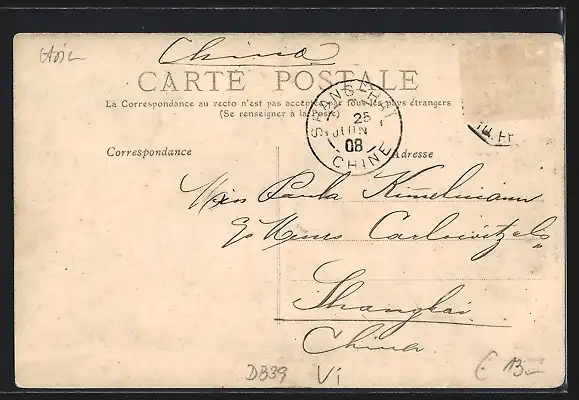 Asie
China
CARTE POSTALE
La Correspondance au recto n'est pas acceptée par tous les pays étrangers
(Se renseigner à la Poste)
SHANG-HAI
25
JUIN
08
CHINE
Correspondance
Adresse
Miss Paula Kimelmann
c/o Messrs Carlowitz & Co
Shanghai
China
DB39
Vi